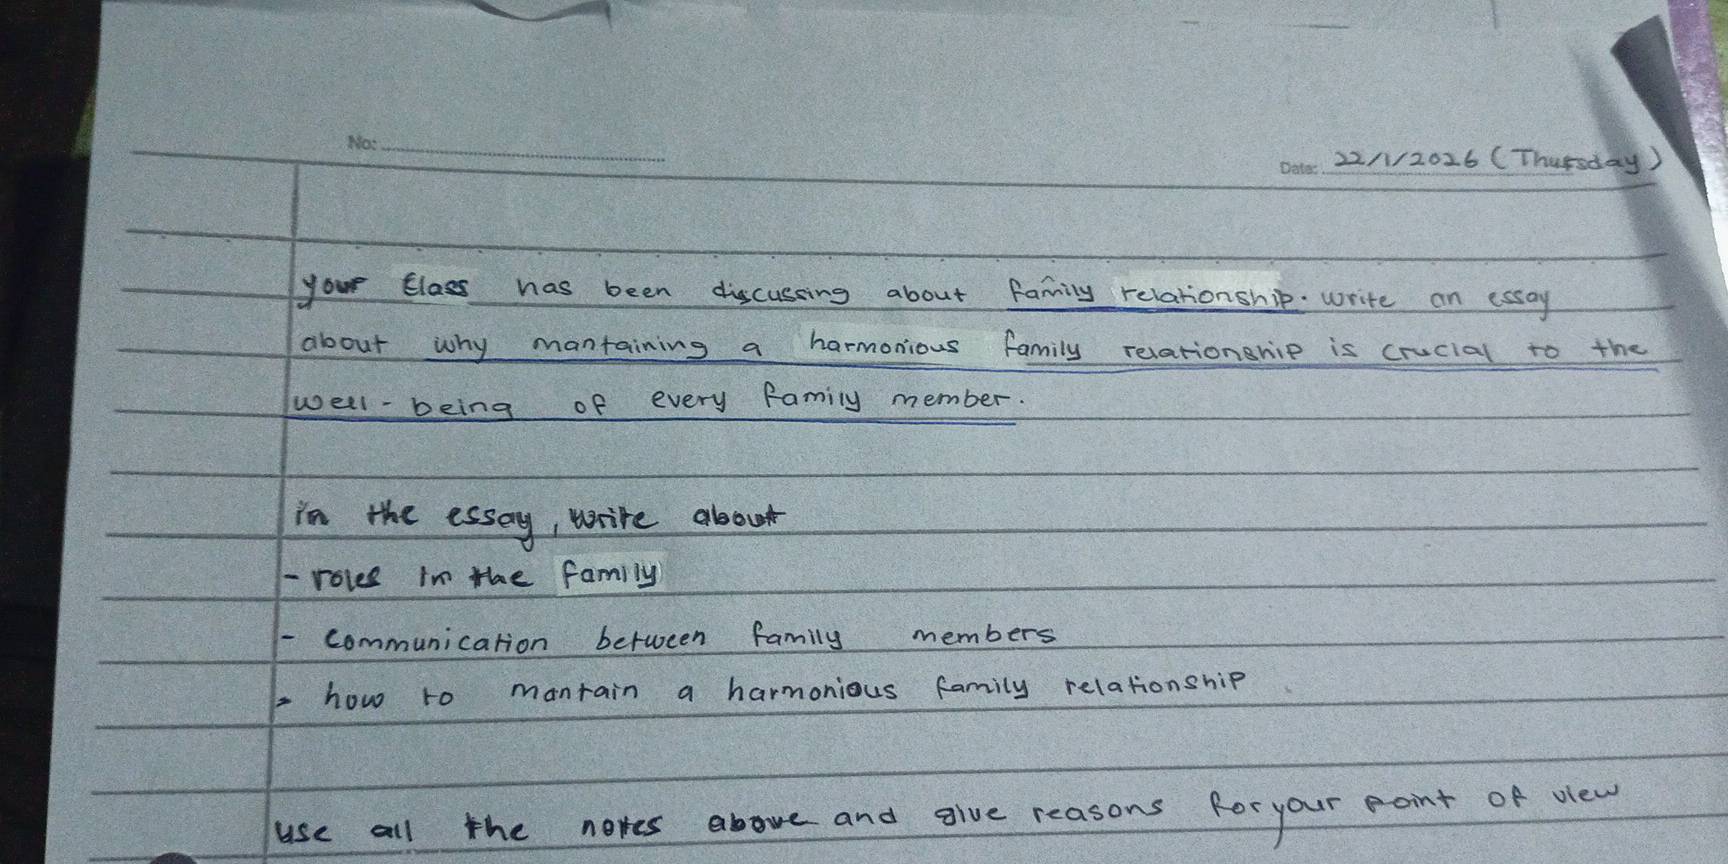 No:
Date: 22/1/2026 (Thursday)
your Class has been discussing about family relationship. write an essay
about why mantaining a harmonious family relationship is crucial to the
well-being of every family member.
in the essay, write about
- roles in the family
- communication between family members
- how to mantain a harmonious family relationship
use all the notes above and give reasons for your point of view